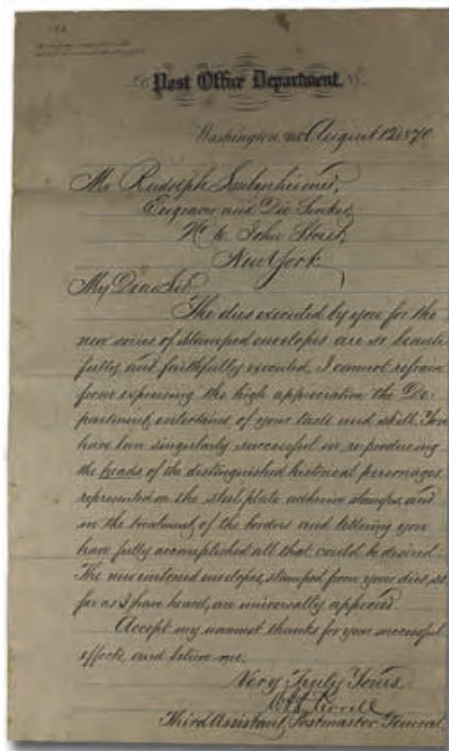 Post Office Department.
Washington, August 12 1870
Mr. Rudolph
Engraver and Die Sinker,
No 6 John Street,
New York.
My Dear Sir
The dies executed by you for the
new series of stamped envelopes are so beauti-
fully and faithfully executed, I cannot refrain
from expressing the high appreciation the De-
partment entertains of your taste and skill. You
have been singularly successful in re-producing
the heads of the distinguished historical personages
represented on the steel plate adhesive stamps, and
in the treatment of the borders and lettering you
have fully accomplished all that could be desired.
The new envelopes, stamped from your dies, so
far as I have heard, are universally approved.
Accept my warmest thanks for your successful
efforts, and believe me:
Very Truly Yours.
Third Assistant Postmaster General.